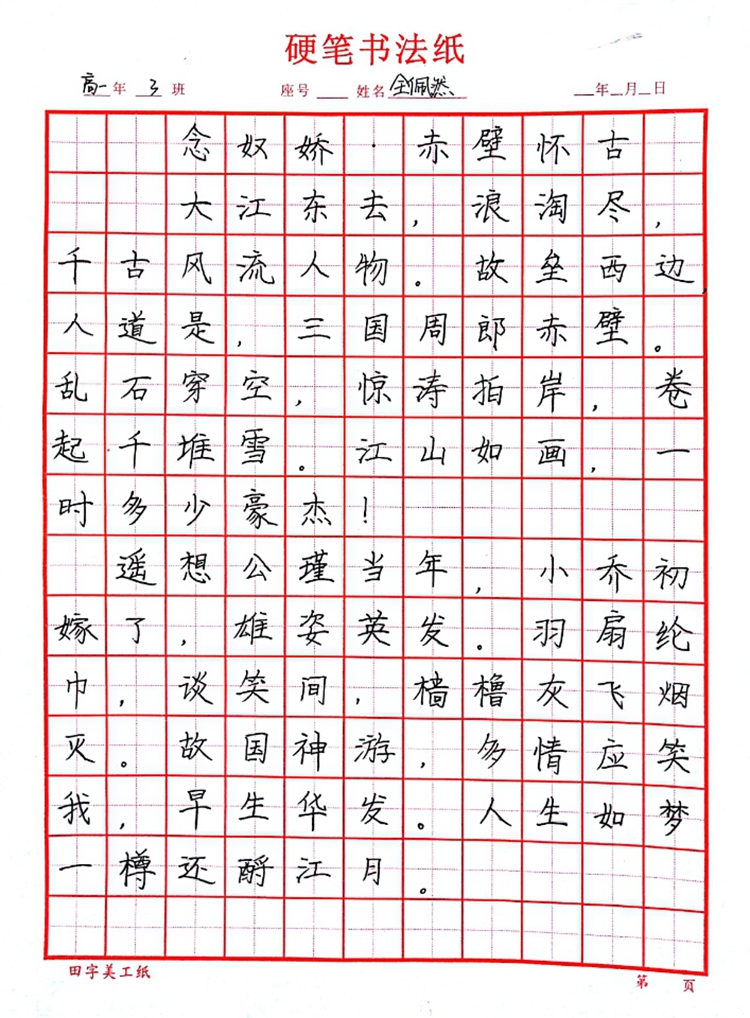 硬笔书法纸
高一年 3 班 座号 姓名 全佩然 年 月 日
念奴娇·赤壁怀古
大江东去,浪淘尽,
千古风流人物。故垒西边,
人道是,三国周郎赤壁。
乱石穿空,惊涛拍岸,卷
起千堆雪。江山如画,一
时多少豪杰!
遥想公瑾当年,小乔初
嫁了,雄姿英发。羽扇纶
巾,谈笑间,樯橹灰飞烟
灭。故国神游,多情应笑
我,早生华发。人生如梦
一樽还酹江月。
田字美工纸 第 页